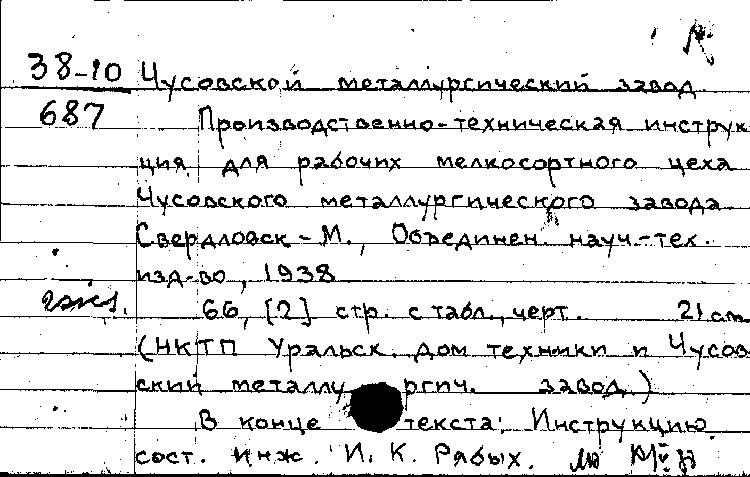 38-10 Чусовской металлургический завод
687 Производственно-техническая инструк
ция для рабочих мелкосортного цеха
Чусовского металлургического завода
Свердловск-М., Объединен. науч.-тех.
изд-во, 1938
66, [2] стр. с табл., черт. 21 cm
(НКТП Уральск. дом техники и Чусов
ский металлургич. завод.)
В конце текста: Инструкцию
сост. инж. И. К. Рябых.